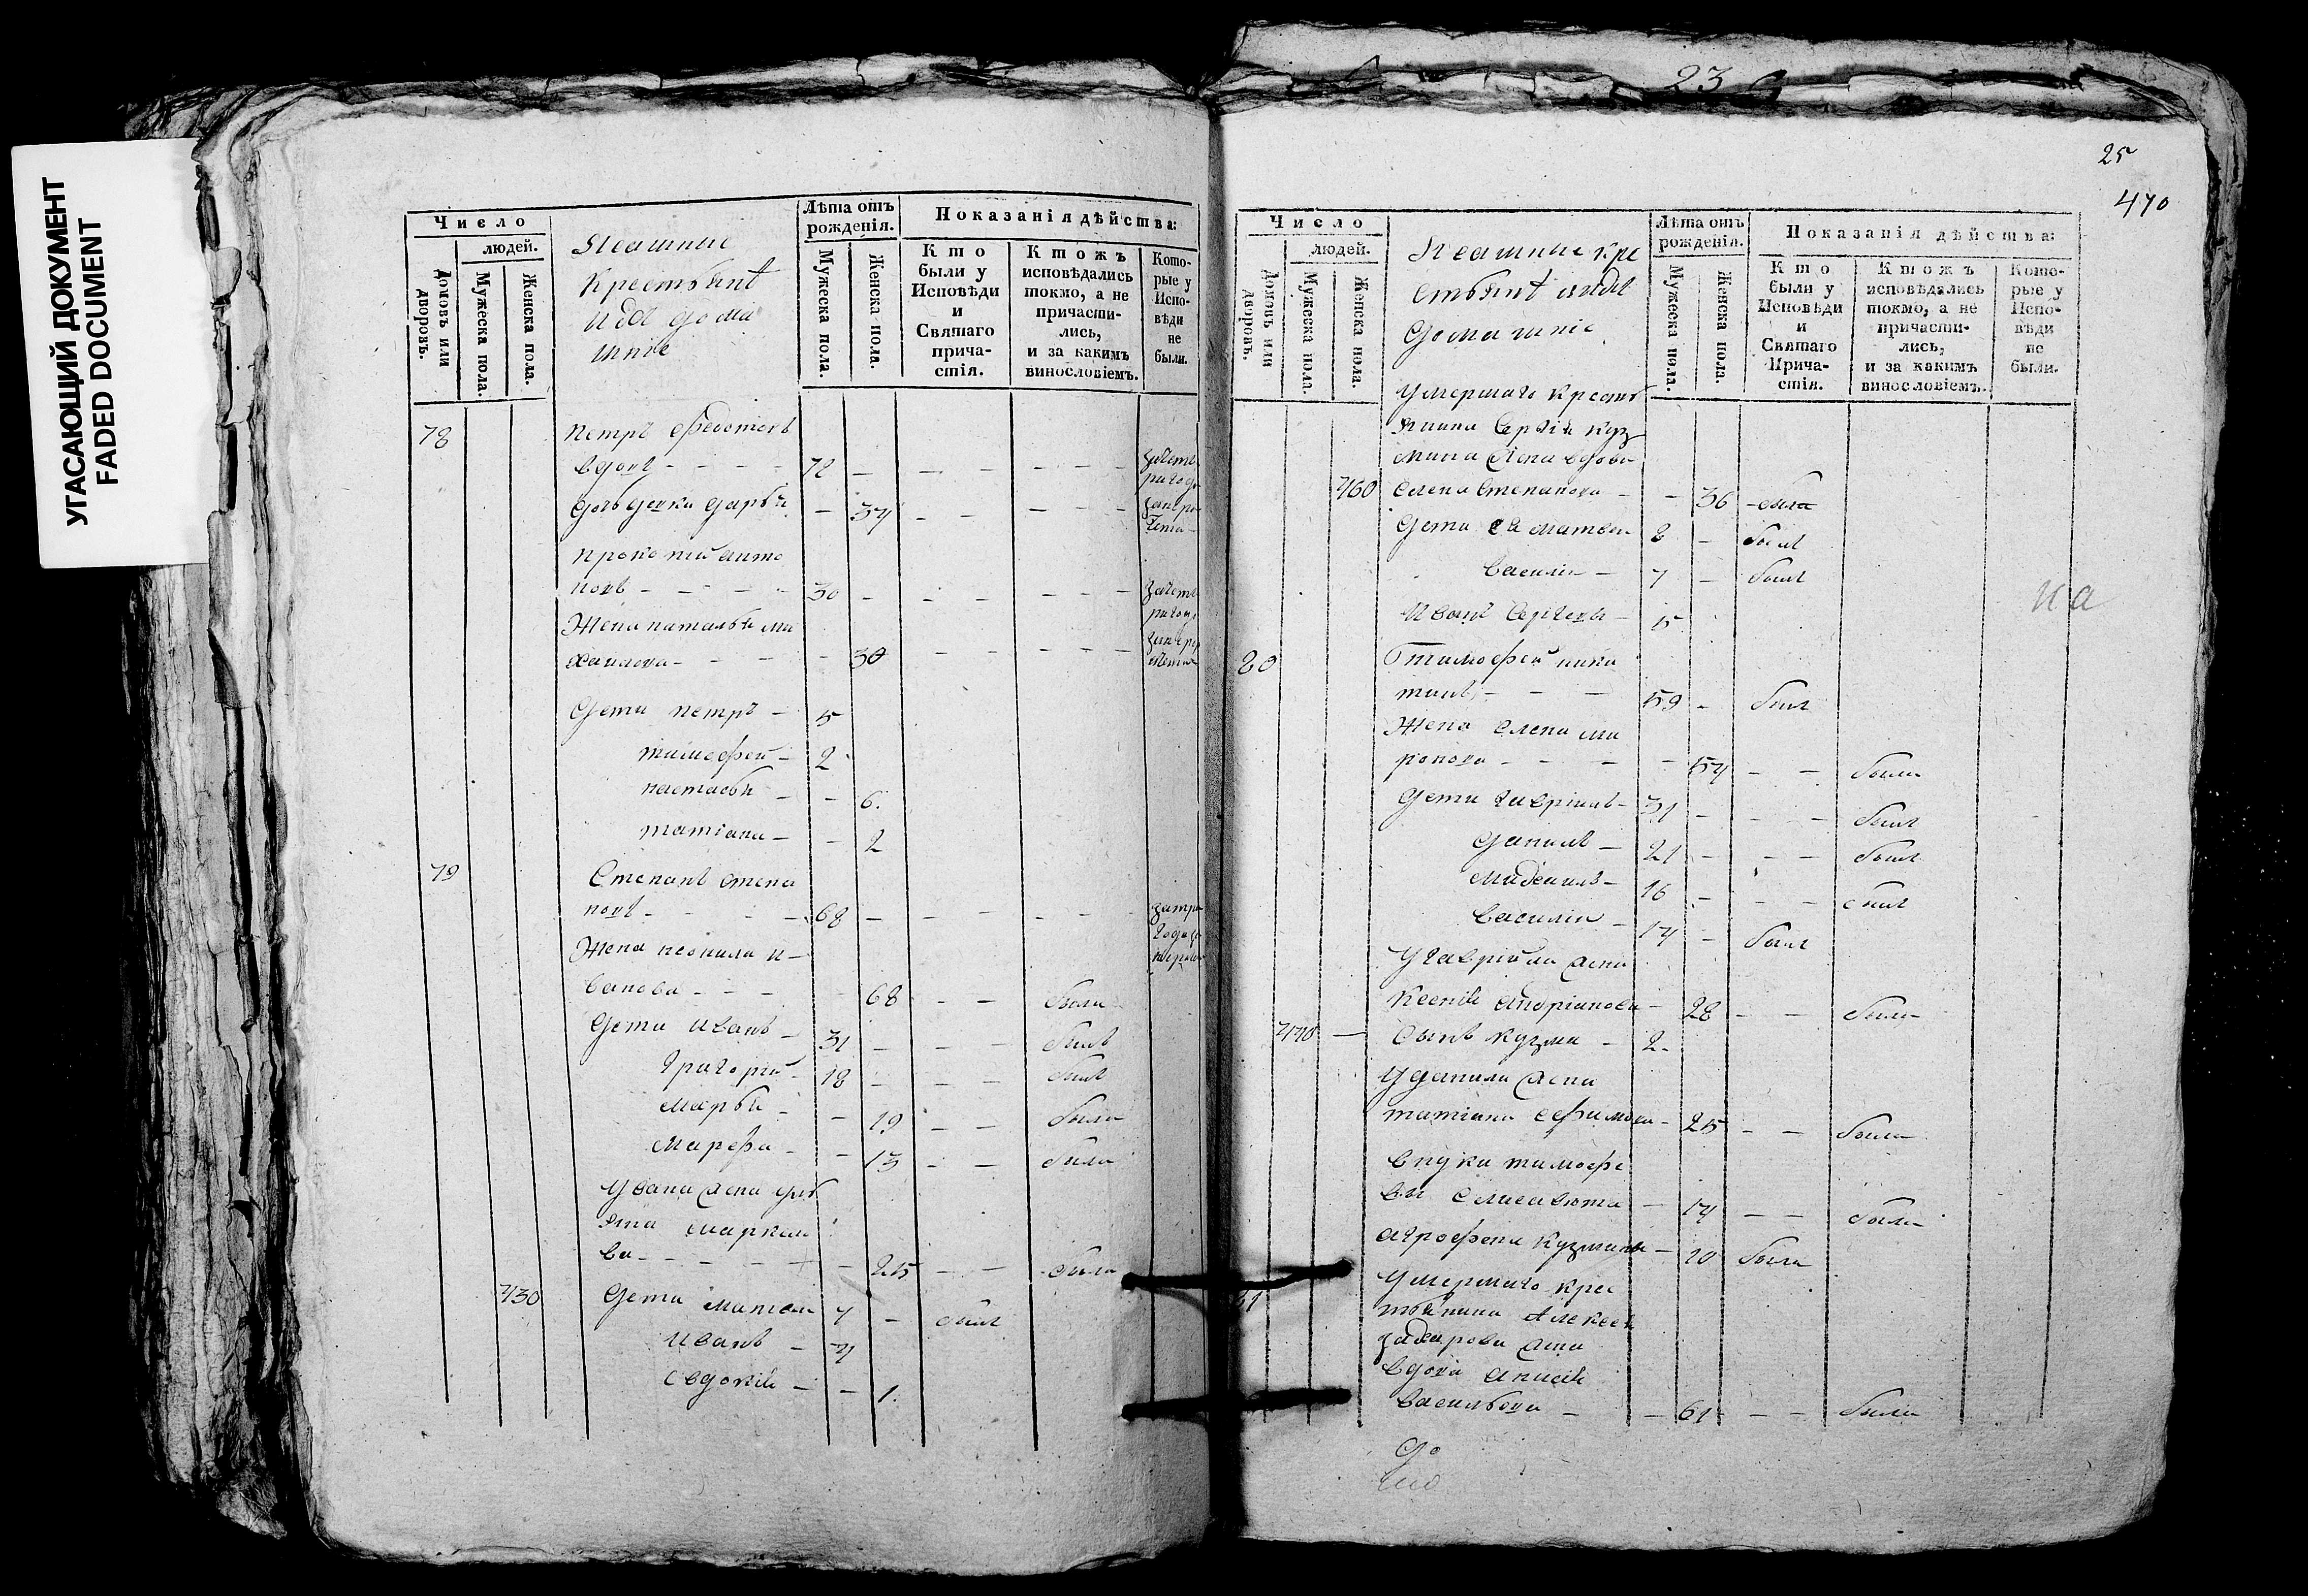 УГАСАЮЩИЙ ДОКУМЕНТ
FADED DOCUMENT
Число
людей.
Домовъ или дворовъ.
Мужеска пола.
Женска пола.
Ясашные
Крестьянѣ
Идѣ дома
шніе
Лѣта отъ
рожденія.
Мужеска пола.
Женска пола.
Показанія дѣйства:
Кто
были у
Исповѣди
и
Святаго
прича-
стія.
Ктожъ
исповѣдались
токмо, а не
причасти-
лись,
и за какимъ
винословіемъ.
Кото-
рые у
Испо-
вѣди
не
были.
78 Петръ Федотовъ
вдовъ - - - - 72 - - - - - -
Дарья - 34 - - - - -
Прокопій Анто
новъ - - - - 30 - - - - - -
Жена Наталья Ми
хаилова - - - - 30 - - - - -
Дети Петръ - 5
Тимофей - 2
Настасья - - 6.
Татіана - - 2
79 Степанъ Степа
новъ - - - - 68 - - - - - -
Жена Неонила И-
ванова - - - 68 - - была
Дети Иванъ - 31 - - - былъ
Григорій - 18 - - - былъ
Марья - - 19 - - была
Марфа - - 13 - - была
У Вани жена
Маркело
ва - - - - - - 25 - - была
430 Дети Матвей 7 - былъ
Иванъ - 4
Евдокія - - 1.
23
25
470
Число
людей.
Домовъ или дворовъ.
Мужеска пола.
Женска пола.
Ясашные кре
стьянѣ идѣ
домашніе
Лѣта отъ
рожденія.
Мужеска пола.
Женска пола.
Показанія дѣйства:
Кто
были у
Исповѣди
и
Святаго
Прича-
стія.
Ктожъ
исповѣдались
токмо, а не
причасти-
лись,
и за какимъ
винословіемъ.
Кото-
рые у
Испо-
вѣди
не
были.
Умершаго кресть
янина Сергія Куз
мина жена вдова
460 Елена Степанова - - 36 - была
Дети ея Матвей 8 - былъ
Василій - 7 - былъ
Иванъ Сергеевъ - 5
80 Тимофей Ники
тинъ - - - 59 - былъ
Жена Елена Ми
ронова - - - - 54 - - была
Дети Гавріилъ - 31 - - - былъ
Данилъ - 21 - - - былъ
Михаилъ - 16 - - - былъ
Василій - 14 - былъ
У Гавріила жена
Ксенія Андріанова - 28 - - была
470 - Сынъ Кузма - 2.
У Данила жена
Татіана Ефимова - 25 - - была
Внуки Тимофе
вы Елисавета - 14 - - была
Агрофена Кузмина - 10 была
81 Умершаго крес
тьянина Алексея
Захарова жена
вдова Анисія
Васильева - - 61 - - была